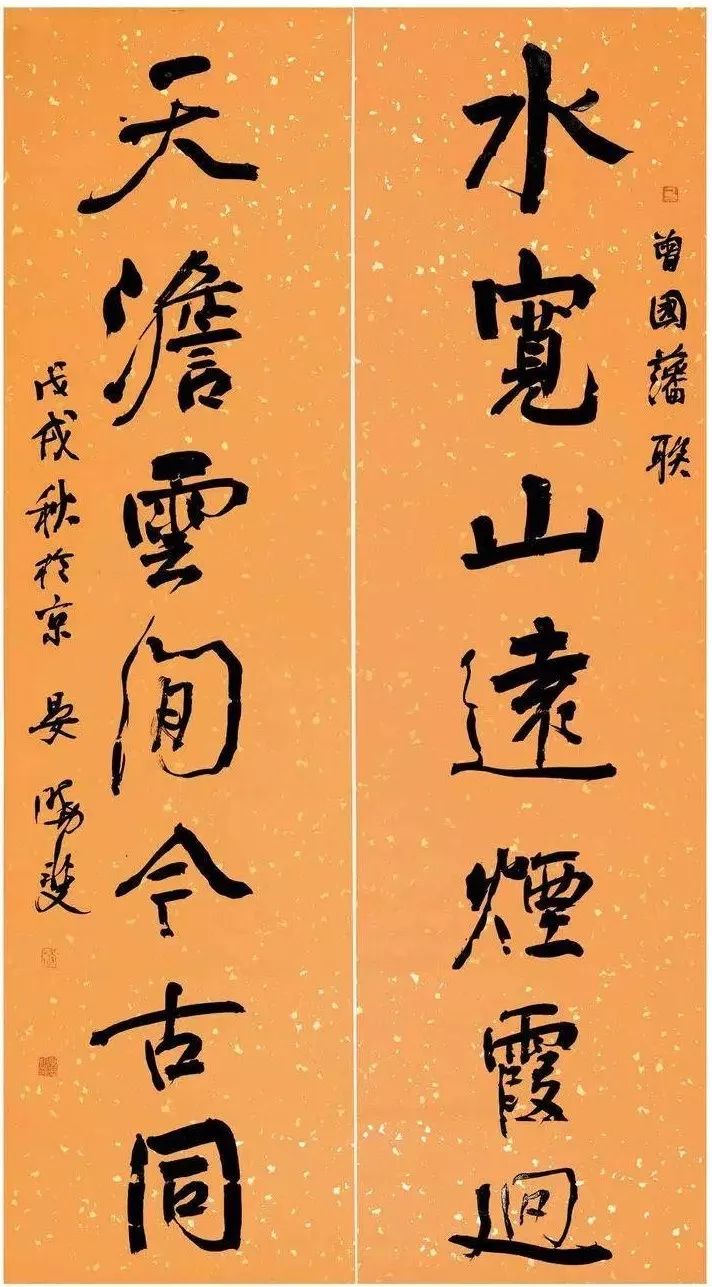 曾國藩联
水寬山遠煙霞迥
天澹雲閒今古同
戊戌秋於京 晏曉斐